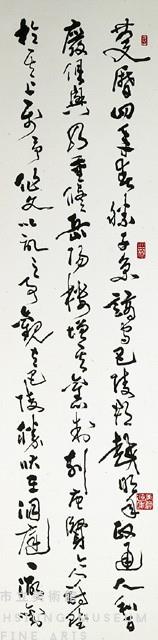 慶曆四年春滕子京謫守巴陵郡越明年政通人和百
廢俱興乃重修岳陽樓增其舊制刻唐賢今人詩賦
於其上屬予作文以記之予觀夫巴陵勝狀在洞庭一湖
市立美術館
HSIUNG MUSEUM
FINE ARTS